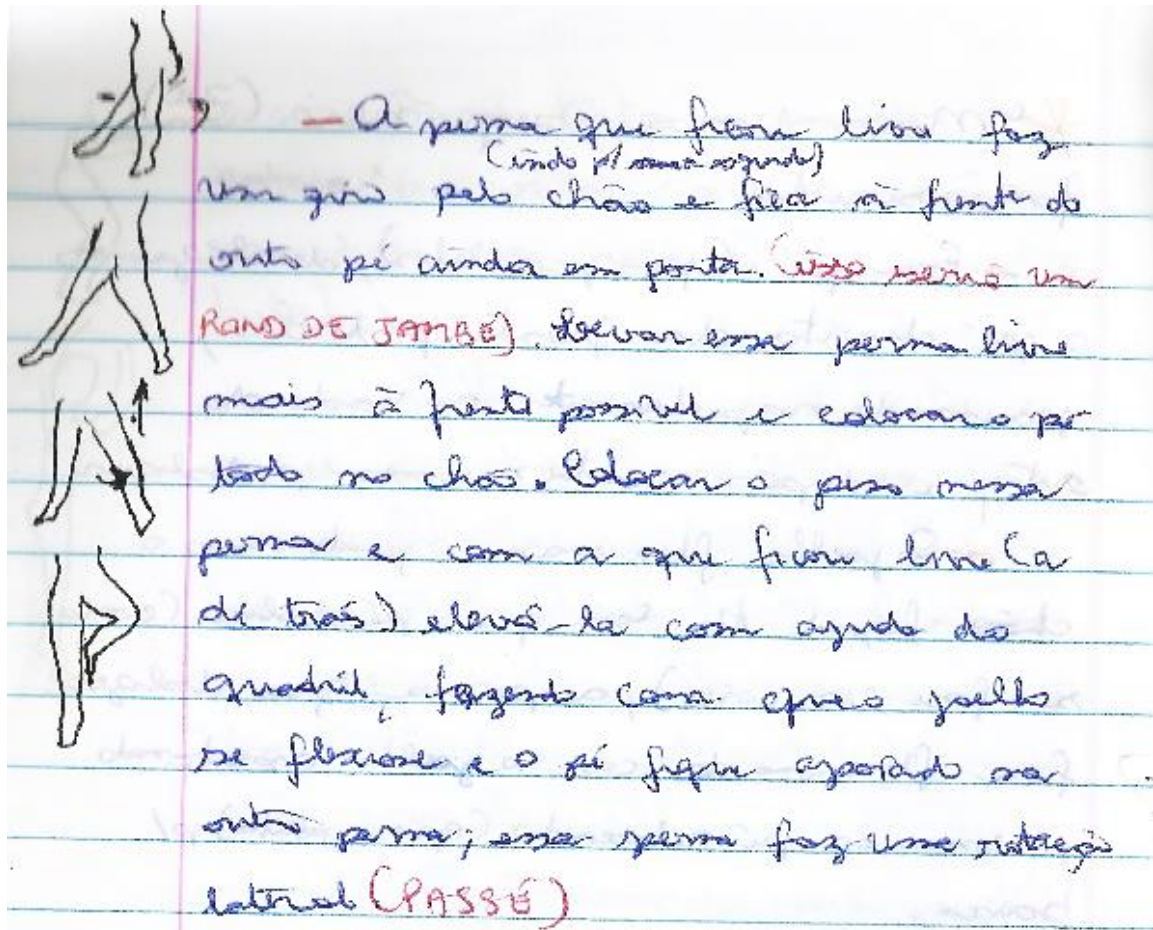 — A perna que ficou livre faz
(indo p/ uma segunda)
um giro pelo chão e fica à frente do
outro pé ainda em ponta. (isso seria um
ROND DE JAMBE). Levar essa perna livre
mais à frente possível e colocar o pé
todo no chão. Colocar o peso nessa
perna e com a que ficou livre (a
de trás) elevá-la com ajuda do
quadril, fazendo com que o joelho
se flexione e o pé fique apoiado na
outra perna; essa perna faz uma rotação
lateral (PASSÉ)